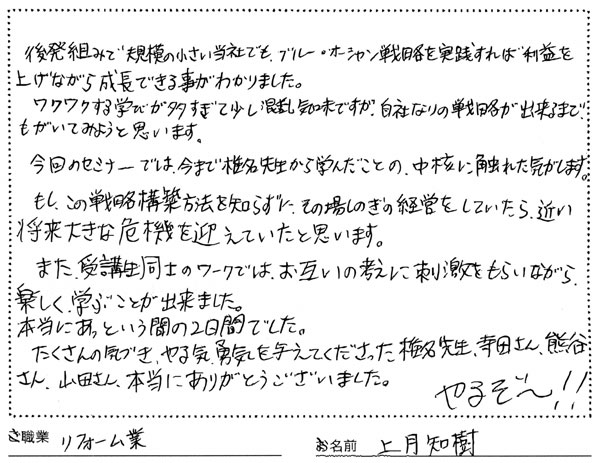 後発組みで規模の小さい当社でも、ブルー・オーシャン戦略を実践すれば利益を
上げながら成長できる事がわかりました。
ワクワクする学びが多すぎて少し混乱気味ですが、自社なりの戦略が出来るまで、
もがいてみようと思います。
今回のセミナーでは、今まで椎名先生から学んだことの、中核に触れた気がします。
もし、この戦略構築方法を知らずに、その場しのぎの経営をしていたら、近い
将来大きな危機を迎えていたと思います。
また、受講生同士のワークでは、お互いの考えに刺激をもらいながら、
楽しく、学ぶことが出来ました。
本当にあっという間の2日間でした。
たくさんの気づき、やる気、勇気を与えてくださった椎名先生、寺田さん、熊谷
さん、山田さん、本当にありがとうございました。
やるぞ〜!!
ご職業 リフォーム業 お名前 上月知樹